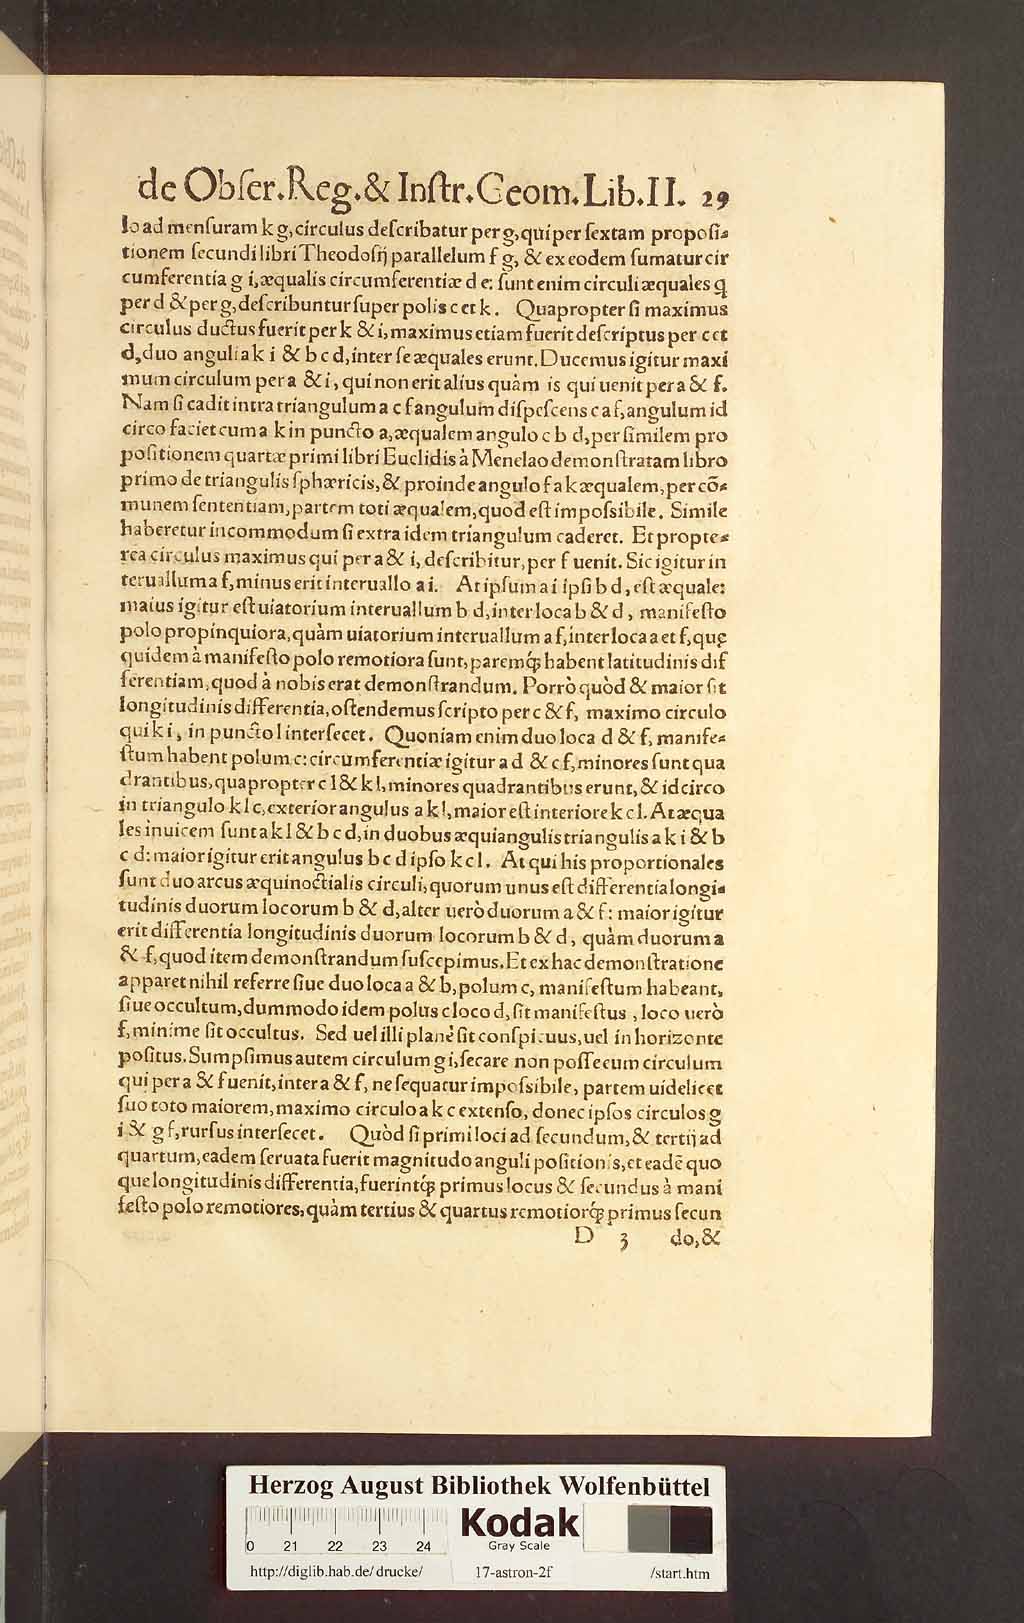 de Obſer.Reg.& Inſtr.Geom.Lib.II. 29
lo ad menſuram k g, circulus deſcribatur per g, qui per ſextam propoſi⸗
tionem ſecundi libri Theodoſij parallelum f g, & ex eodem ſumatur cir
cumferentia g i, æqualis circumferentiæ d e: ſunt enim circuli æquales q
per d & per g, deſcribuntur ſuper polis c et k. Quapropter ſi maximus
circulus ductus fuerit per k & i, maximus etiam fuerit deſcriptus per c et
d, duo anguli a k i & b c d, inter ſe æquales erunt. Ducemus igitur maxi
mum circulum per a & i, qui non erit alius quàm is qui uenit per a & f.
Nam ſi cadit intra triangulum a c f angulum diſpeſcens c a f, angulum id
circo faciet cum a k in puncto a, æqualem angulo c b d, per ſimilem pro
poſitionem quartæ primi libri Euclidis à Menelao demonſtratam libro
primo de triangulis ſphæricis, & proinde angulo f a k æqualem, per cõ⸗
munem ſententiam, partem toti æqualem, quod eſt impoſsibile. Simile
haberetur incommodum ſi extra idem triangulum caderet. Et propte⸗
rea circulus maximus qui per a & i, deſcribitur, per f uenit. Sic igitur in
teruallum a f, minus erit interuallo a i. At ipſum a i ipſi b d, eſt æquale:
maius igitur eſt uiatorium interuallum b d, inter loca b & d, manifeſto
polo propinquiora, quàm uiatorium interuallum a f, inter loca a et f, quę
quidem à manifeſto polo remotiora ſunt, paremq́ꝫ habent latitudinis dif
ferentiam, quod à nobis erat demonſtrandum. Porrò quòd & maior ſit
longitudinis differentia, oſtendemus ſcripto per c & f, maximo circulo
qui k i, in puncto l interſecet. Quoniam enim duo loca d & f, manife⸗
ſtum habent polum c: circumferentiæ igitur a d & c f, minores ſunt qua
drantibus, quapropter c l & k l, minores quadrantibus erunt, & idcirco
in triangulo k l c, exterior angulus a k l, maior eſt interiore k c l. At æqua
les inuicem ſunt a k l & b c d, in duobus æquiangulis triangulis a k i & b
c d: maior igitur erit angulus b c d ipſo k c l. At qui his proportionales
ſunt duo arcus æquinoctialis circuli, quorum unus eſt differentia longi⸗
tudinis duorum locorum b & d, alter uerò duorum a & f: maior igitur
erit differentia longitudinis duorum locorum b & d, quàm duorum a
& f, quod item demonſtrandum ſuſcepimus. Et ex hac demonſtratione
apparet nihil referre ſiue duo loca a & b, polum c, manifeſtum habeant,
ſiue occultum, dummodo idem polus c loco d, ſit manifeſtus, loco uerò
f, minime ſit occultus. Sed uel illi planè ſit conſpicuus, uel in horizonte
poſitus. Sumpſimus autem circulum g i, ſecare non poſſe cum circulum
qui per a & f uenit, inter a & f, ne ſequatur impoſsibile, partem uidelicet
ſuo toto maiorem, maximo circulo a k c extenſo, donec ipſos circulos g
i & g f, rurſus interſecet. Quòd ſi primi loci ad ſecundum, & tertij ad
quartum, eadem ſeruata fuerit magnitudo anguli poſitionis, et eadẽ quo
que longitudinis differentia, fuerintq́ꝫ primus locus & ſecundus à mani
feſto polo remotiores, quàm tertius & quartus remotiorq́ꝫ primus ſecun
D 3 do, &
Herzog August Bibliothek Wolfenbüttel
Kodak
Gray Scale
0 21 22 23 24
http://diglib.hab.de/drucke/ 17-astron-2f /start.htm